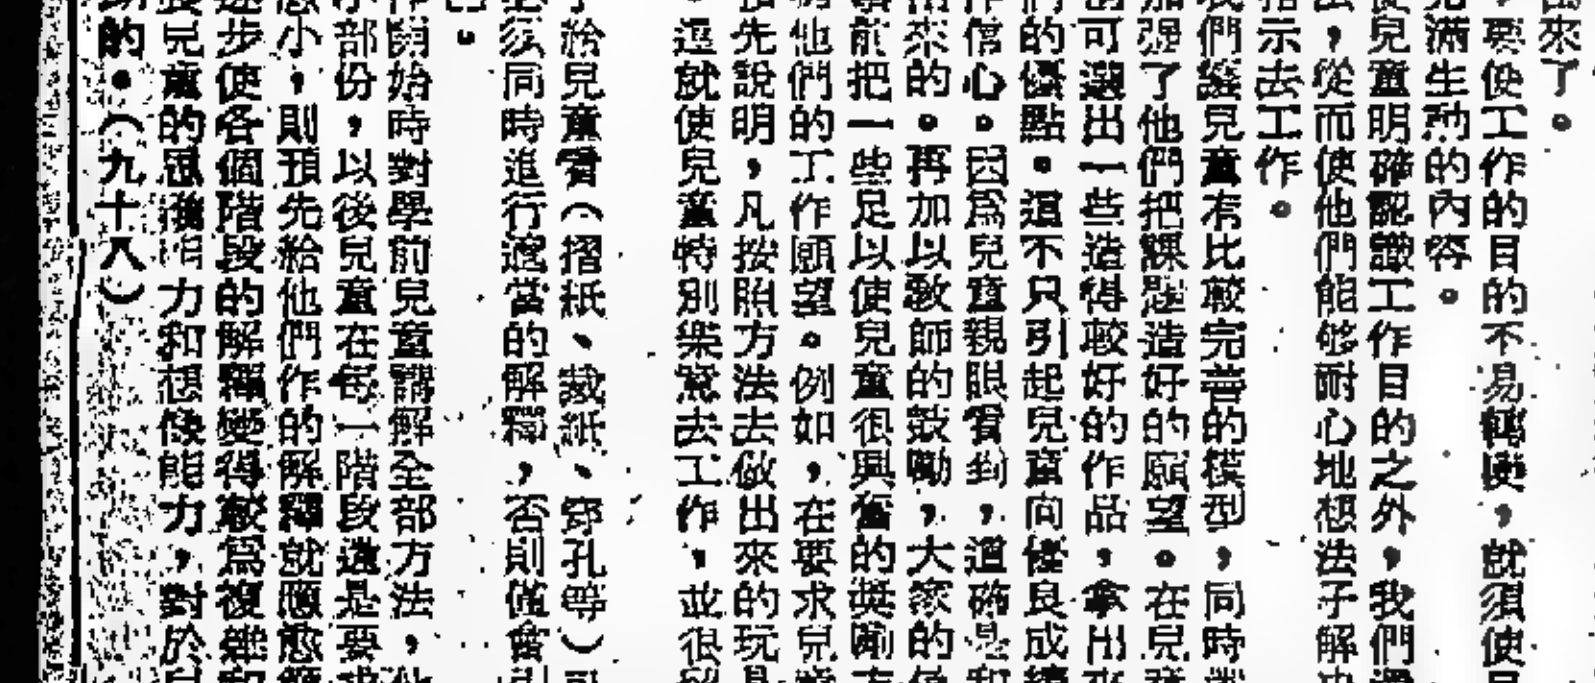 來了。
要使工作的目的不易轉變，就須使
滿生動的內容。
兒童明確認識工作目的之外，我們
，從而使他們能够耐心地想法子解
指示去工作。
我們讓兒童有比較完善的模型，同時
加强了他們把課題造好的願望。在兒
可選出一些造得較好的作品，拿出來
們的優點。這不只引起兒童向優良成績
信心。因爲兒童親眼看到，這確是和
來的。再加以敎師的鼓勵，大家的
前把一些足以使兒童很興奮的獎勵
他們的工作願望。例如，在要求兒童
先說明，凡按照方法去做出來的玩具
，這就使兒童特別樂意去工作，並很
給兒童看（摺紙、裁紙、穿孔等）可
須同時進行適當的解釋，否則僅會引
。
作開始時對學前兒童講解全部方法，
小部份，以後兒童在每一階段遠是要求
愈小，則預先給他們作的解釋就應愈
逐步使各個階段的解釋變得較爲複雜和
兒童的思維能力和想像能力，對於
的。（九十八）